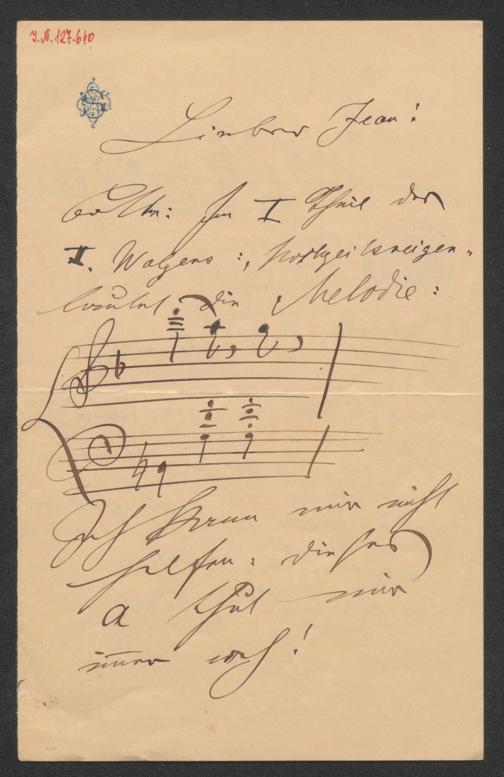 I.N. 127.640
Lieber Jean!
Bitte: Im I Theil des
II. Walzers: "Hochzeitsreigen"
lautet die Melodie:
Ich kann mir nicht
helfen: dieses
a thut mir
im̅er weh!